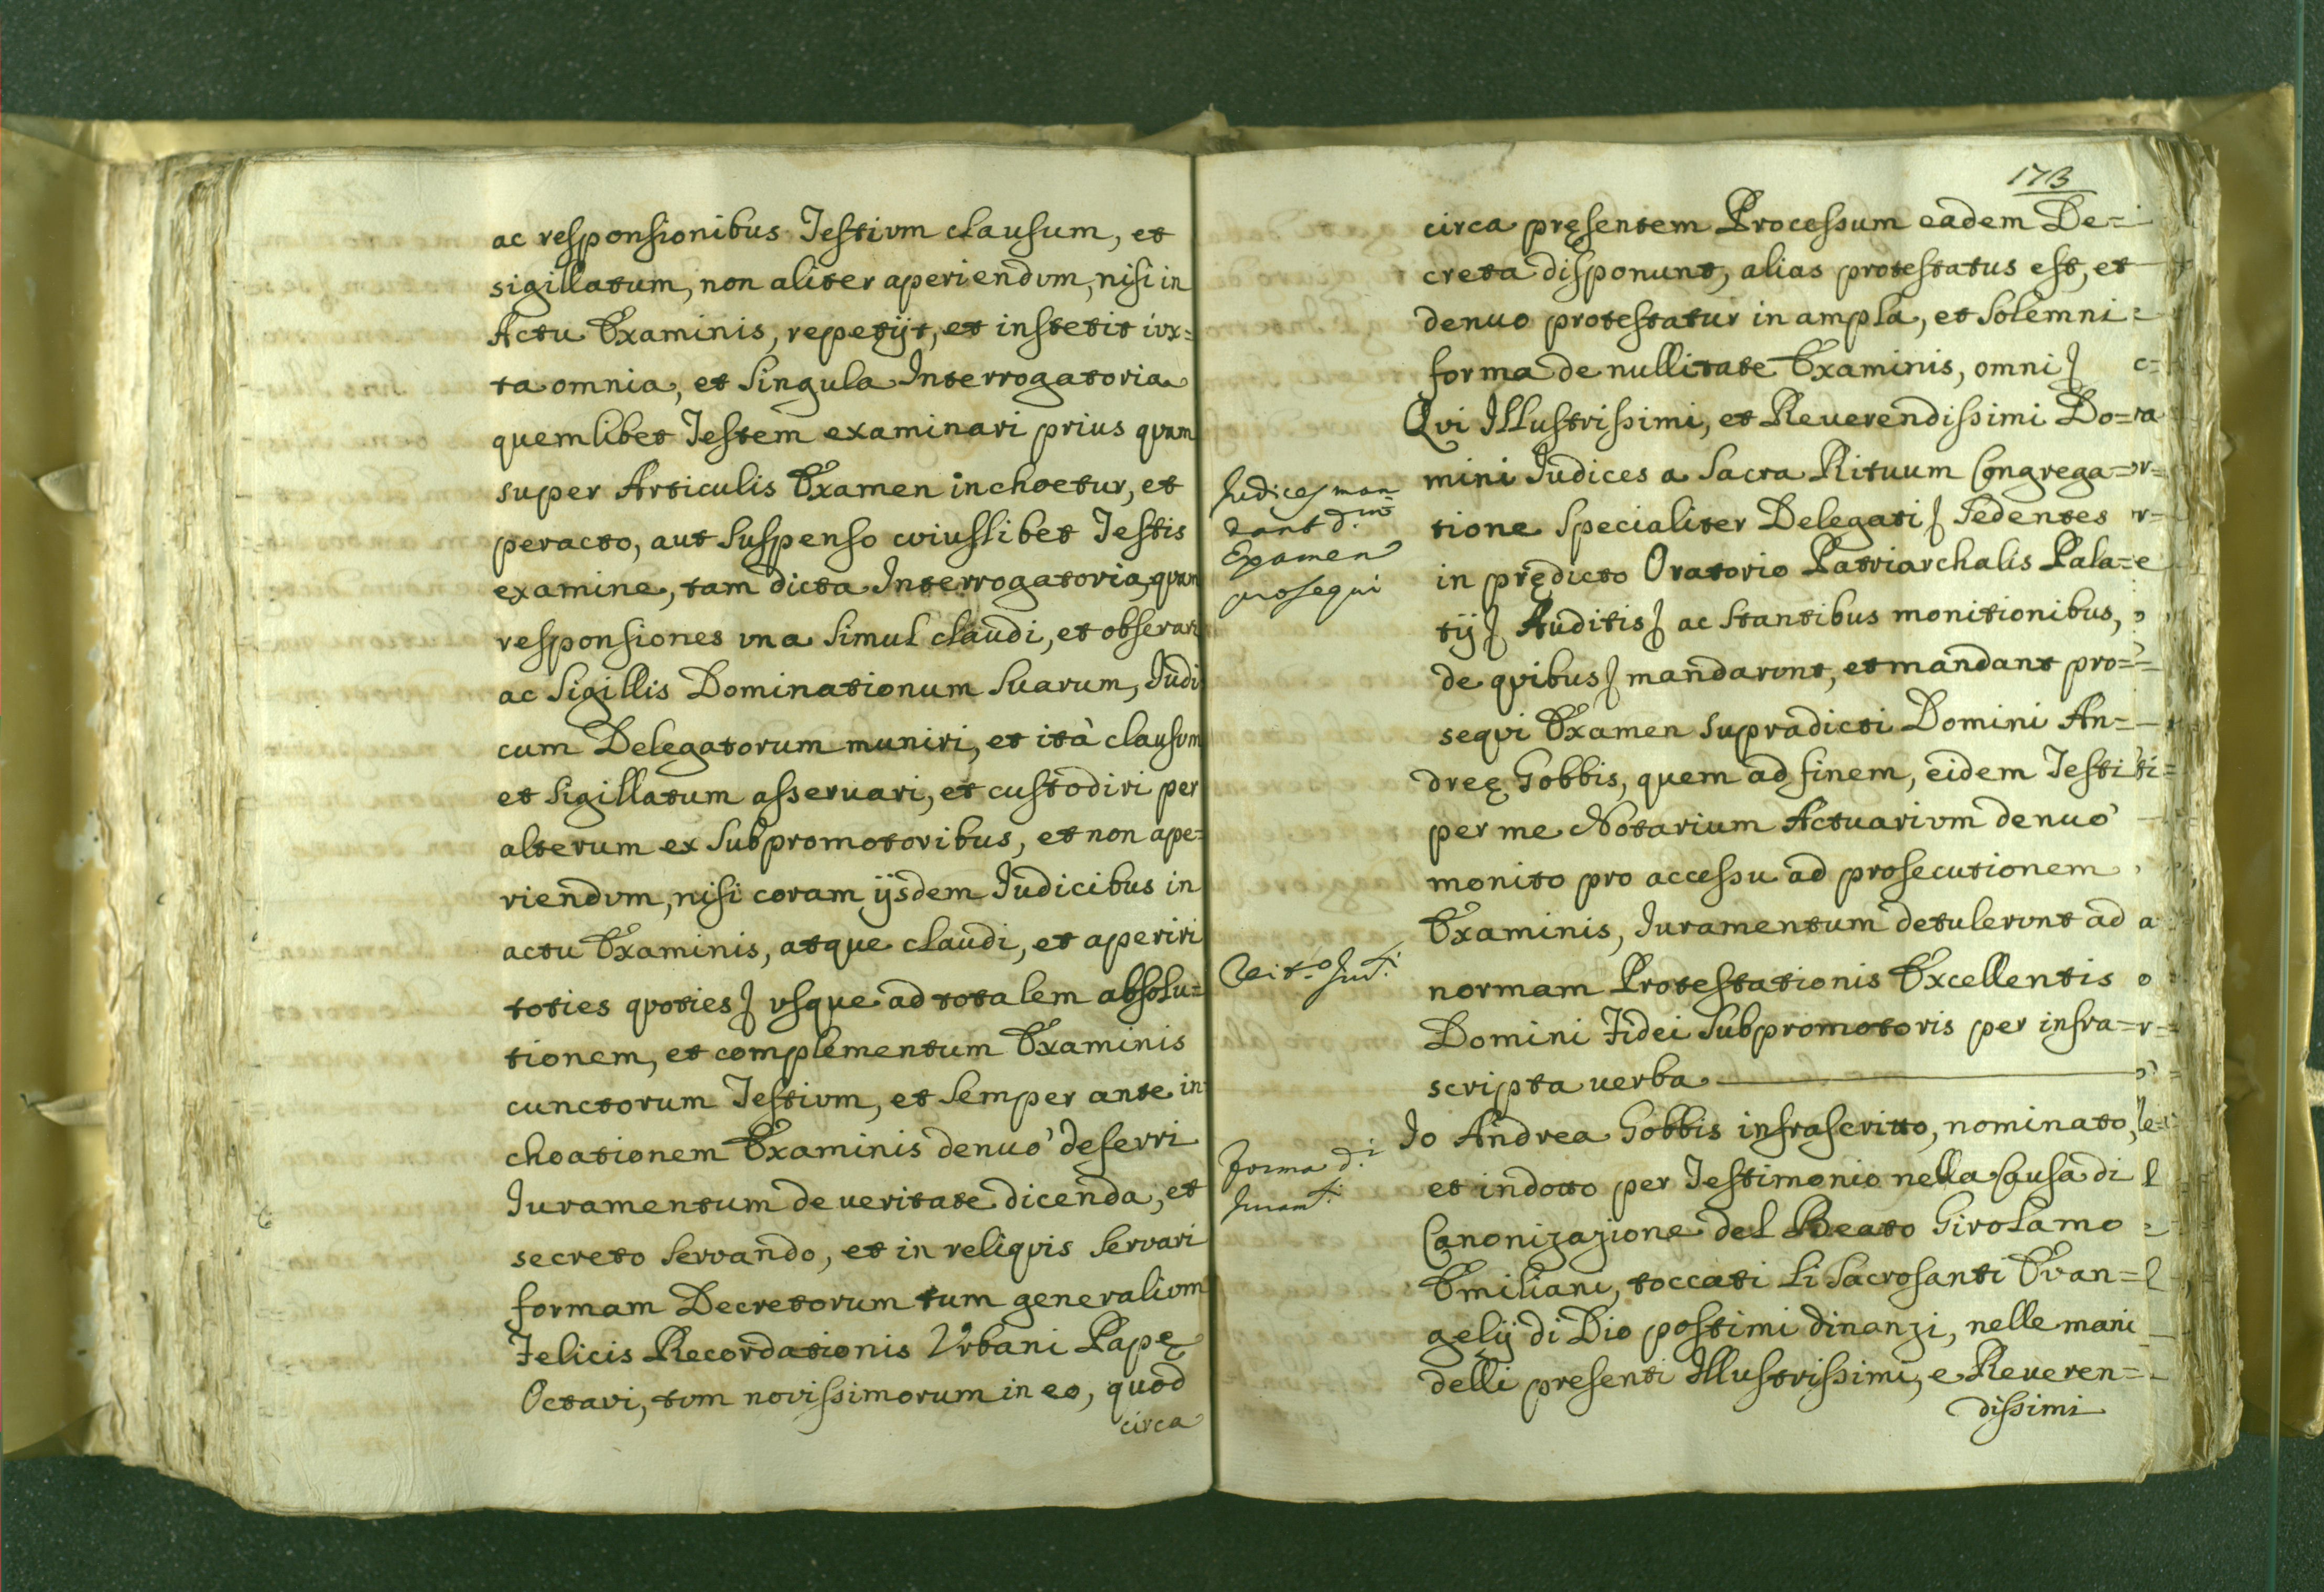 ac responsionibus Testium clausum, et
sigillatum, non aliter aperiendum, nisi in
Actu Examinis, repetijt, et institit iux=
ta omnia, et singula Interrogatoria
quemlibet Testem examinari prius quam
super Articulis Examen inchoetur, et
peracto, aut suspenso cuiuslibet Testis
examine, tam dicta Interrogatoria, quam
responsiones una simul claudi, et obserari
ac Sigillis Dominationum suarum, Iudi
cum Delegatorum muniri, et ità clausum
et sigillatum asseruari, et custodiri per
alterum ex subpromotoribus, et non ape=
riendum, nisi coram ijsdem Iudicibus in
actu Examinis, atque claudi, et aperiri
toties quoties usque ad totalem absolu=
tionem, et complementum Examinis
cunctorum Testium, et semper ante in
choationem Examinis denuò deferri
Iuramentum de ueritate dicenda, et
secreto servando, et in reliquis servari
formam Decretorum tum generalium
Felicis Recordationis Urbani Papę
Octavi, tum novissimorum in eo, quod
circa
173
circa pręsentem Processum eadem De=
creta disponunt, alias protestatus est, et
denuo protestatur in ampla, et solemni
forma de nullitate Examinis, omni
Qui Illustrissimi, et Reuerendissimi Do=
mini Iudices a Sacra Rituum Congrega=
tione specialiter Delegati sedentes
in prędicto Oratorio Patriarchalis Pala=
tij Auditis ac stantibus monitionibus,
de quibus mandarunt, et mandant pro=
sequi Examen supradicti Domini An=
dreę Gobbis, quem ad finem, eidem Testi
per me Notarium Actuarium denuò
monito pro accessu ad prosecutionem
Examinis, Iuramentum detulerunt ad
normam Protestationis Excellentis
Domini Fidei Subpromotoris per infra=
scripta uerba
Io Andrea Gobbis infrascritto, nominato,
et indotto per Testimonio nella Causa di
Canonizazione del Beato Girolamo
Emiliani, toccati li Sacrosanti Evan=
gelij di Dio postimi dinanzi, nelle mani
delli presenti Illustrissimi, e Reueren=
dissimi
Iudices man
dant d.
Examen
prosequi
Forma d.i
Iuram.ti